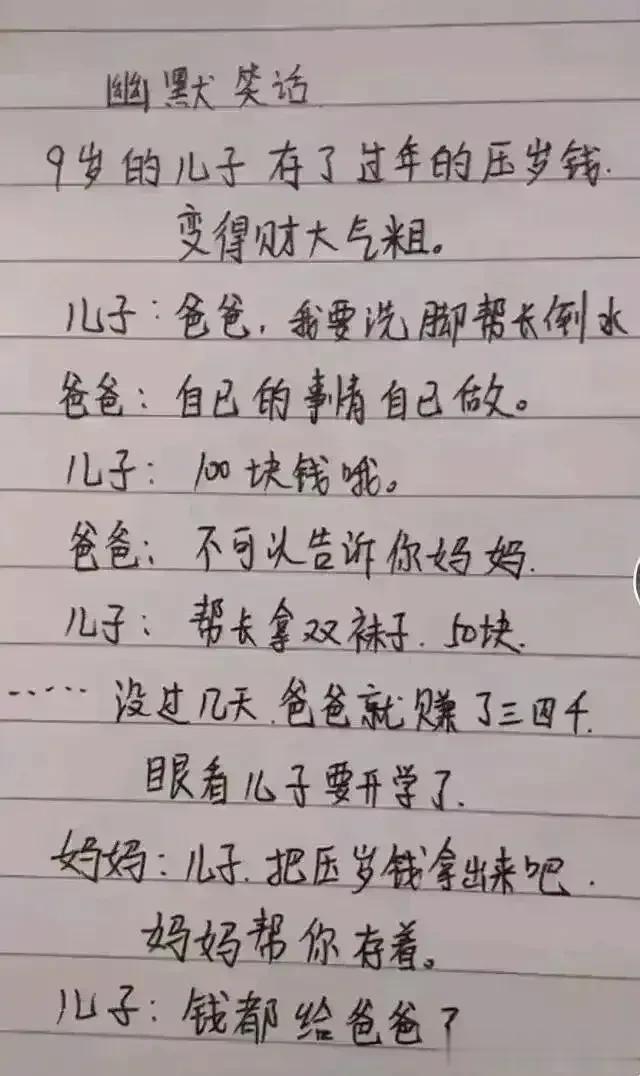 幽默笑话
9岁的儿子存了过年的压岁钱.
变得财大气粗。
儿子：爸爸，我要洗脚帮长倒水
爸爸：自已的事情自已做。
儿子：100块钱哦。
爸爸：不可以告诉你妈妈.
儿子：帮长拿双袜子.50块.
……没过几天.爸爸就赚了三四千.
眼看儿子要开学了.
妈妈：儿子.把压岁钱拿出来吧.
妈妈帮你存着。
儿子：钱都给爸爸了